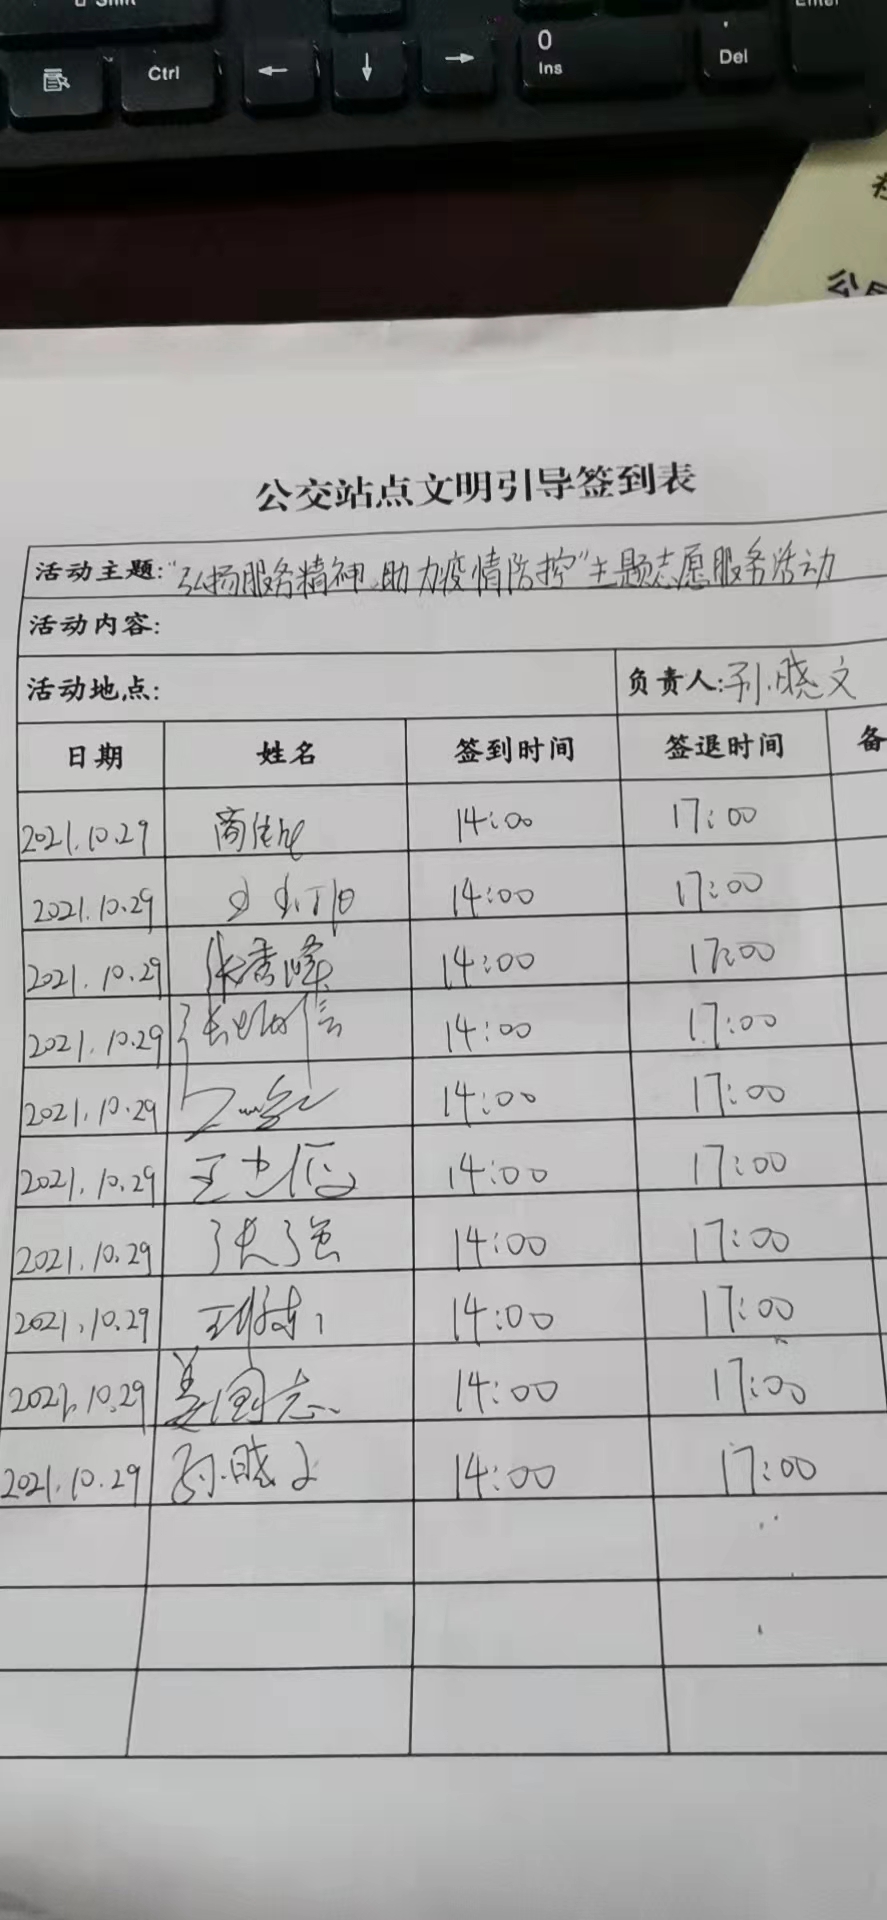 Shift
Enter
Ctrl
←
↓
→
0
Ins
.
Del
公交站点文明引导签到表
活动主题:"弘扬服务精神、助力疫情防控"主题志愿服务活动
活动内容:
活动地点:
负责人:孙晓文
日期 姓名 签到时间 签退时间 备
2021.10.29 14:00 17:00
2021.10.29 14:00 17:00
2021.10.29 张秀峰 14:00 17:00
2021.10.29 14:00 17:00
2021.10.29 14:00 17:00
2021.10.29 14:00 17:00
2021.10.29 张强 14:00 17:00
2021.10.29 14:00 17:00
2021.10.29 姜国志 14:00 17:00
2021.10.29 孙晓文 14:00 17:00